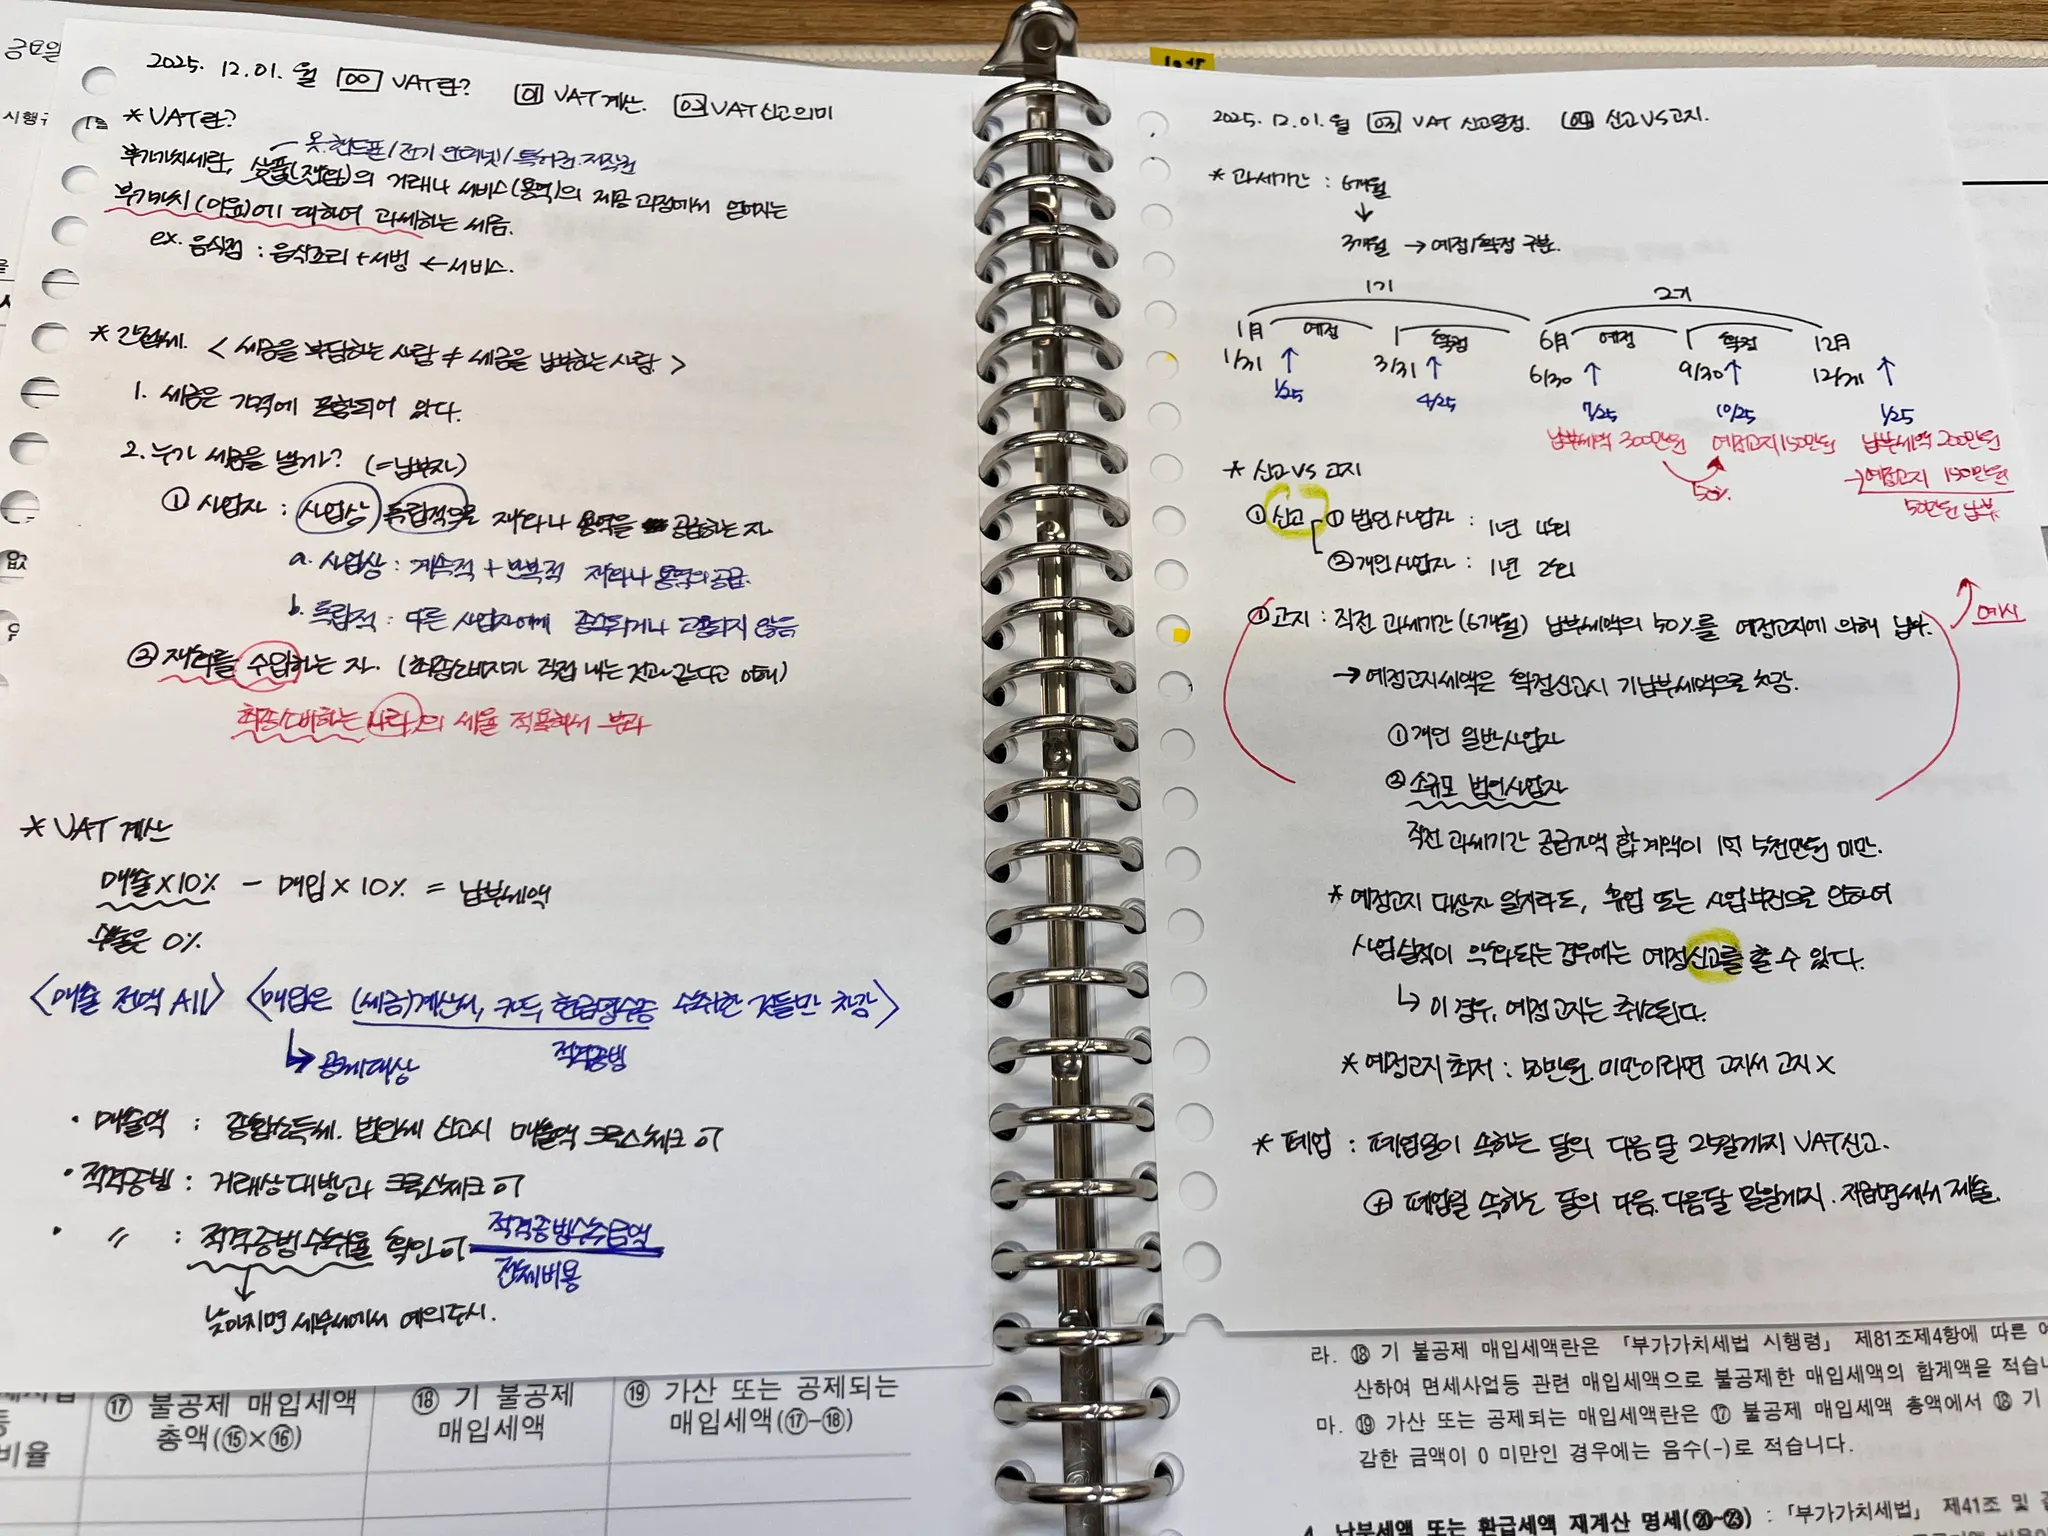 금요일
시행규
2025. 12. 01. 월 00 VAT란? 01 VAT 계산. 02 VAT 신고의미
* VAT란?
옷.핸드폰/전기 인터넷/특허권.저작권
부가가치세란, 상품(재화)의 거래나 서비스(용역)의 제공 과정에서 얻어지는
부가가치(이윤)에 대하여 과세하는 세금.
ex. 음식점 : 음식조리 + 서빙 ← 서비스.
* 간접세. < 세금을 부담하는 사람 ≠ 세금을 납부하는 사람 >
1. 세금은 가격에 포함되어 있다.
2. 누가 세금을 낼까? (=납부자)
① 사업자 : 사업상 독립적으로 재화나 용역을 공급하는 자
a. 사업상 : 계속적 + 반복적 재화나 용역의 공급.
b. 독립적 : 다른 사업자에게 종속되거나 고용되지 않음
② 재화를 수입하는 자. (최종소비자가 직접 내는 것과 같다고 이해)
최종소비하는 나라의 세율 적용해서 부과
* VAT 계산
매출×10% - 매입×10% = 납부세액
수출은 0%.
<매출 전액 All> <매입은 (세금)계산서, 카드, 현금영수증 수취한 것들만 차감>
↳ 공제대상
적격증빙
· 매출액 : 종합소득세. 법인세 신고시 매출액 크로스체크 可
· 적격증빙 : 거래상대방과 크로스체크 可
· 〃 : 적격증빙수취율 확인 可 적격증빙수수금액
전체비용
↓
낮아지면 세무서에서 예의주시.
⑰ 불공제 매입세액
총액(⑮×⑯)
⑱ 기 불공제
매입세액
⑲ 가산 또는 공제되는
매입세액(⑰-⑱)
비율
2025. 12. 01. 월 03 VAT 신고일정. 04 신고 VS 고지.
* 과세기간 : 6개월
↓
3개월 → 예정/확정 구분.
1기 2기
1月 예정 확정 6月 예정 확정 12月
1/31 ↑ 3/31 ↑ 6/30 ↑ 9/30 ↑ 12/31 ↑
1/25 4/25 7/25 10/25 1/25
납부세액 300만원 예정고지 150만원 납부세액 200만원
50% → 예정고지 150만원
50만원 납부.
* 신고 VS 고지
① 신고 ① 법인사업자 : 1년 4회
② 개인사업자 : 1년 2회
예시
② 고지 : 직전 과세기간(6개월) 납부세액의 50%를 예정고지에 의해 납부.
→ 예정고지세액은 확정신고시 기납부세액으로 차감.
① 개인 일반사업자
② 소규모 법인사업자
직전 과세기간 공급가액 합계액이 1억 5천만원 미만.
* 예정고지 대상자 일지라도, 휴업 또는 사업부진으로 인하여
사업실적이 악화되는 경우에는 예정신고를 할 수 있다.
↳ 이 경우, 예정고지는 취소된다.
* 예정고지 최저 : 50만원. 미만이라면 고지서 고지 X
* 폐업 : 폐업일이 속하는 달의 다음달 25일까지 VAT신고.
⊕ 폐업일 속하는 달의 다음.다음달 말일까지. 지급명세서 제출.
라. ⑱ 기 불공제 매입세액란은 「부가가치세법 시행령」 제81조제4항에 따른
산하여 면세사업등 관련 매입세액으로 불공제한 매입세액의 합계액을 적습니
마. ⑲ 가산 또는 공제되는 매입세액란은 ⑰ 불공제 매입세액 총액에서 ⑱ 기
감한 금액이 0 미만인 경우에는 음수(-)로 적습니다.
4. 납부세액 또는 환급세액 재계산 명세(⑳~㉓) : 「부가가치세법」 제41조 및